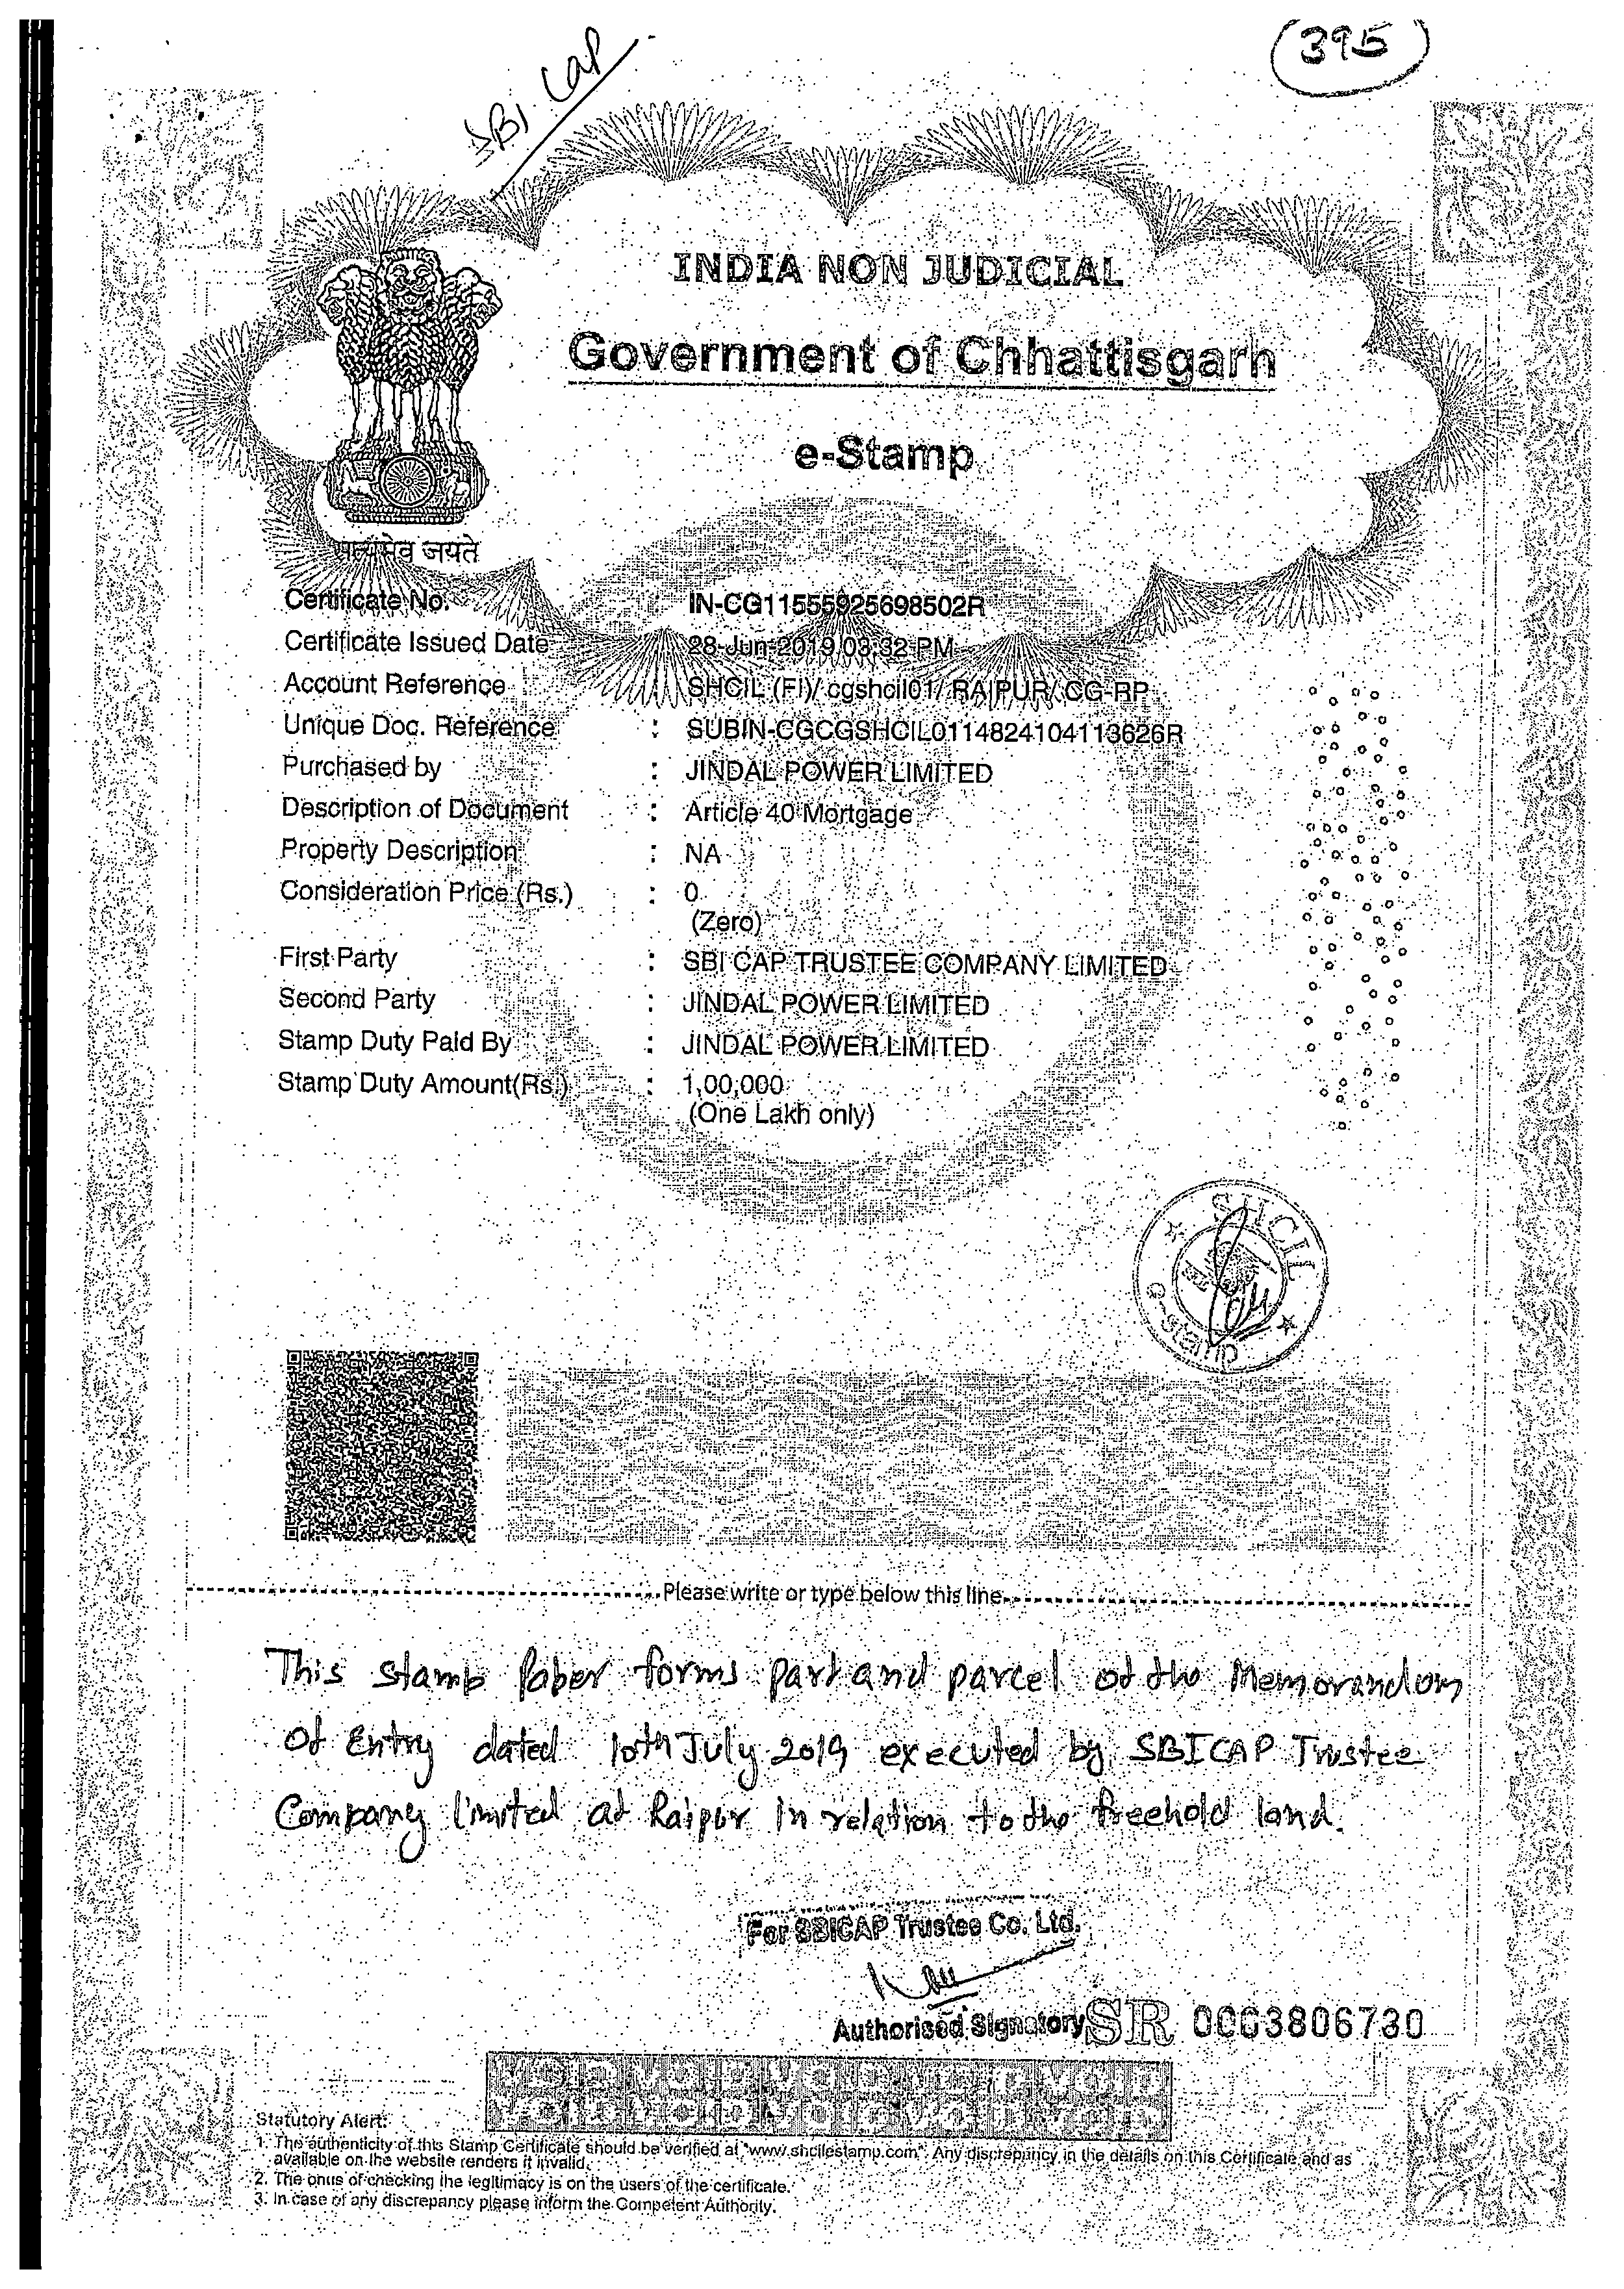 395
SBI Cap
INDIA NON JUDICIAL
Government of Chhattisgarh
e-Stamp
सत्यमेव जयते
Certificate No. IN-CG11555925698502R
Certificate Issued Date 28-Jun-2019 03:32 PM
Account Reference SHCIL (FI)/ cgshcil01/ RAIPUR/ CG-RP
Unique Doc. Reference : SUBIN-CGCGSHCIL0114824104113626R
Purchased by : JINDAL POWER LIMITED
Description of Document : Article 40 Mortgage
Property Description : NA
Consideration Price (Rs.) : 0
(Zero)
First Party : SBI CAP TRUSTEE COMPANY LIMITED
Second Party : JINDAL POWER LIMITED
Stamp Duty Paid By : JINDAL POWER LIMITED
Stamp Duty Amount(Rs.) : 1,00,000
(One Lakh only)
SHCIL
e-Stamp
Please write or type below this line
This stamp Paper forms part and parcel of the Memorandom
Of Entry dated 10th July 2019 executed by SBICAP Trustee
Company limited at Raipur in relation to the freehold land.
For SBICAP Trustee Co. Ltd.
Authorised Signatory SR 0003806730
Statutory Alert:
1. The authenticity of this Stamp Certificate should be verified at "www.shcilestamp.com". Any discrepancy in the details on this Certificate and as
available on the website renders it invalid.
2. The onus of checking the legitimacy is on the users of the certificate.
3. In case of any discrepancy please inform the Competent Authority.